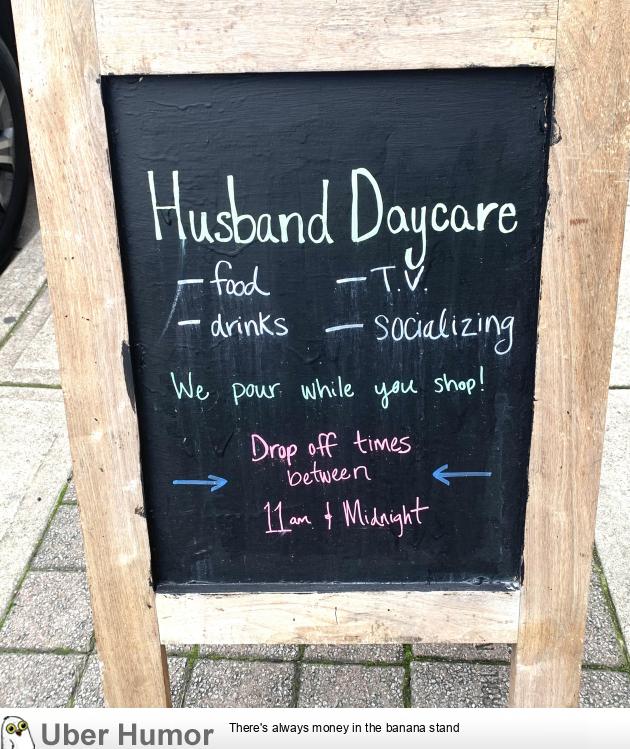 Husband Daycare
– food – T.V.
– drinks – socializing
We pour while you shop!
Drop off times
between
11am & Midnight
Uber Humor There's always money in the banana stand